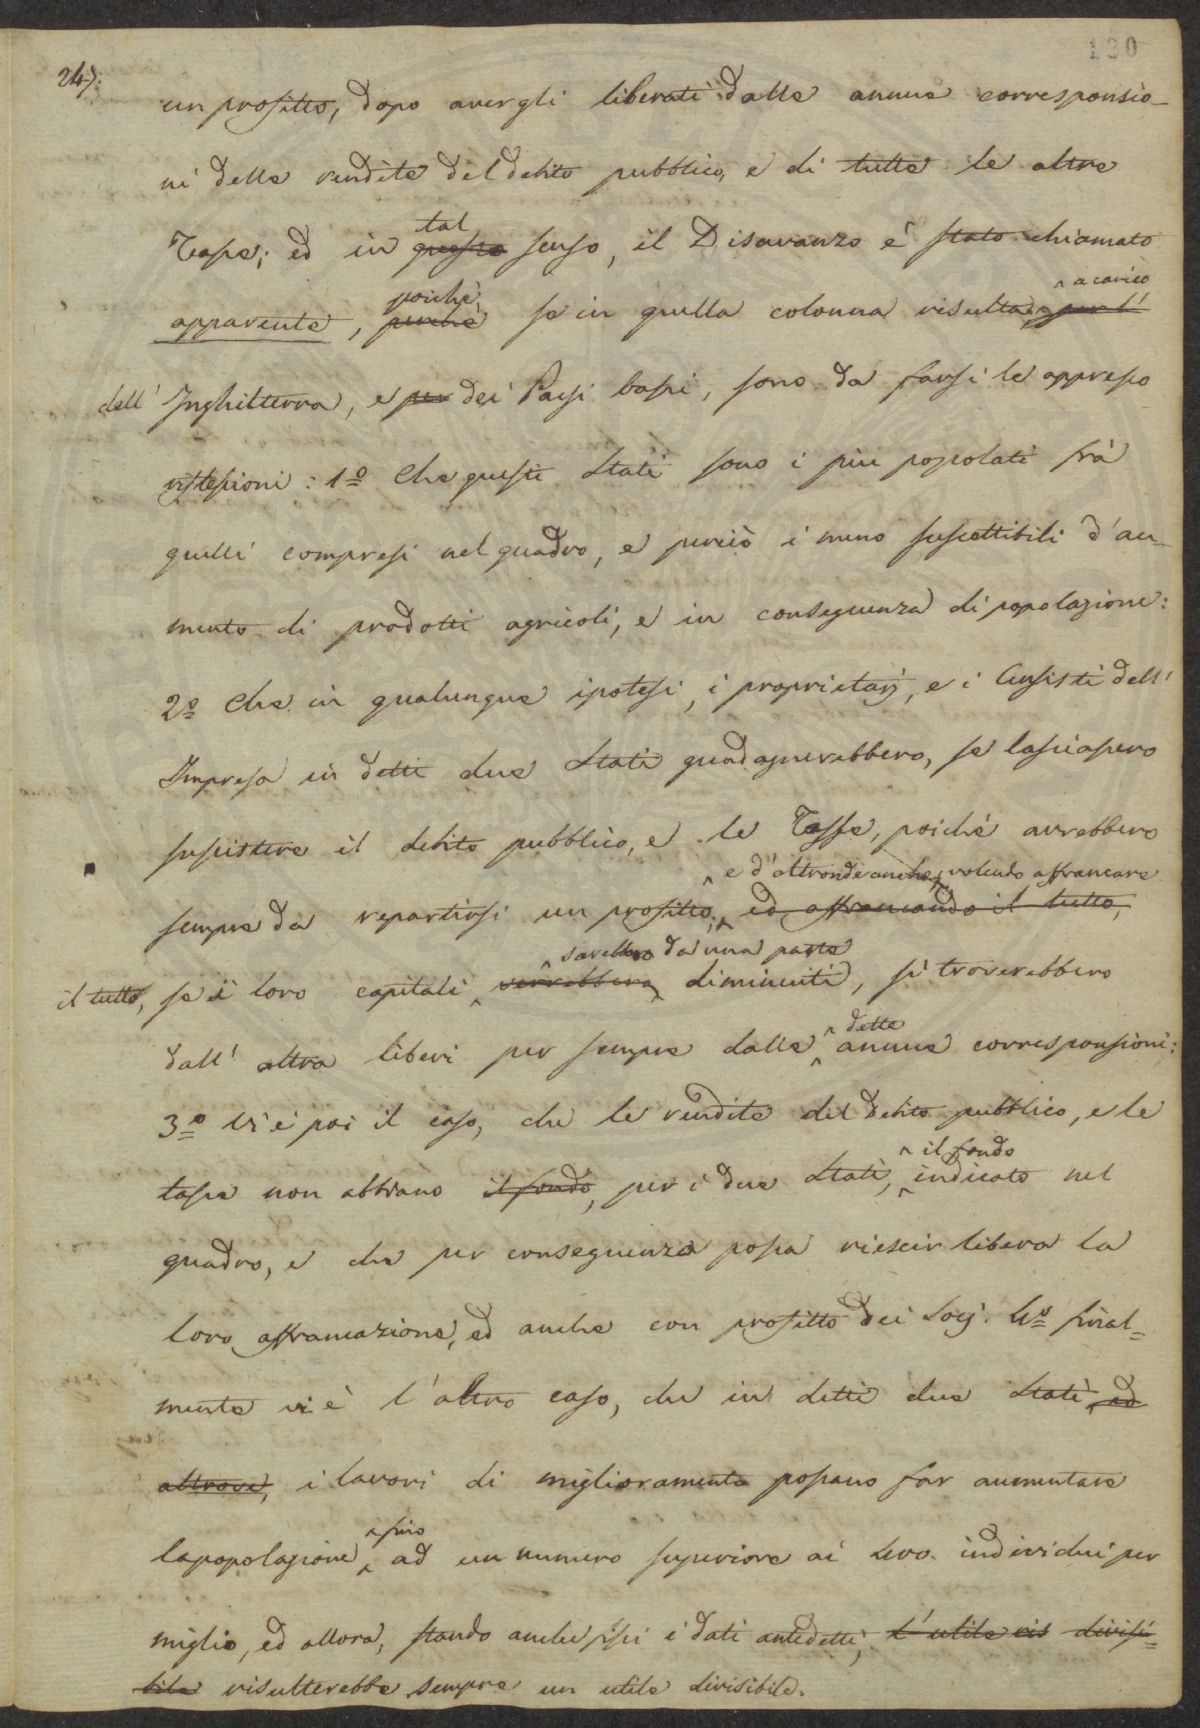 247.
130
un profitto, dopo avergli liberati dalle annue corresponsio-
ni delle rendite del debito pubblico, e di tutte le altre
tal
Tasse; ed in questo senso, il Disavanzo è stato chiamato
poichè, a carico
apparente, perchè se in quella colonna risulta per l'
dell' Inghilterra, e per dei Paesi bassi, sono da farsi le appresso
riflessioni: 1º Che questi Stati sono i più popolati frà
quelli compresi nel quadro, e perciò i meno suscettibili d'au-
mento di prodotti agricoli, e in conseguenza di popolazione:
2º Che in qualunque ipotesi, i proprietarj, e i Censisti dell'
Impresa in detti due Stati guadagnerebbero, se lasciassero
sussistere il debito pubblico, e le Tasse, poichè avrebbero
e d'altronde anche, volendo affrancare
sempre da repartirsi un profitto; ed affrancando il tutto,
sarebbero da una parte
il tutto, se i loro capitali verrebbero diminuiti, si troverebbero
dette
dall' altra liberi per sempre dalle annue corresponsioni:
3º Vi è poi il caso, che le rendite del debito pubblico, e le
il fondo
tasse non abbiano il fondo, per i due Stati, indicato nel
quadro, e che per conseguenza possa riescir libera la
loro affrancazione, ed anche con profitto dei Socj. 4º final=
mente vi è l'altro caso, che in detti due Stati, ed
altrove, i lavori di miglioramento possano far aumentare
fino
la popolazione ad un numero superiore ai individui per
miglio, ed allora, stando anche fissi i dati antedetti, l'utile divisi=
bile risulterebbe sempre un utile divisibile.